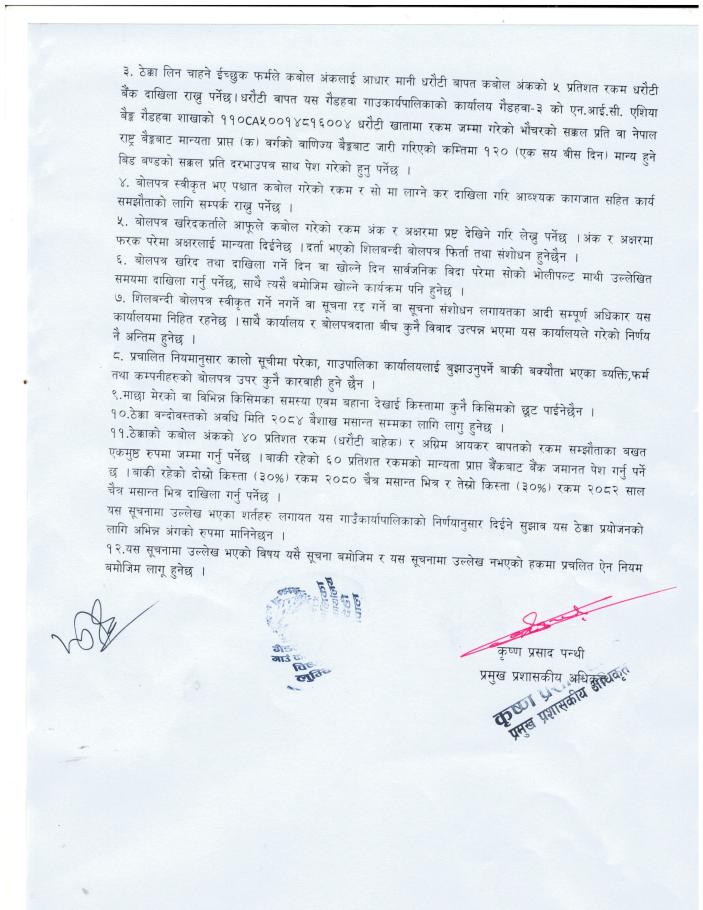 ३. ठेक्का लिन चाहने ईच्छुक फर्मले कबोल अंकलाई आधार मानी धरौटी बापत कबोल अंकको ५ प्रतिशत रकम धरौटी
बैंक दाखिला राख्नु पर्नेछ।धरौटी बापत यस गैडहवा गाउकार्यपालिकाको कार्यालय गैडहवा-३ को एन.आई.सी. एशिया
बैङ्क गैडहवा शाखाको ११०CA५००१४८१६००४ धरौटी खातामा रकम जम्मा गरेको भौचरको सक्कल प्रति वा नेपाल
राष्ट्र बैङ्कबाट मान्यता प्राप्त (क) बर्गको वाणिज्य बैङ्कबाट जारी गरिएको कम्तिमा १२० (एक सय बीस दिन) मान्य हुने
बिड बण्डको सक्कल प्रति दरभाउपत्र साथ पेश गरेको हुनु पर्नेछ ।
४. बोलपत्र स्वीकृत भए पश्चात कबोल गरेको रकम र सो मा लाग्ने कर दाखिला गरि आव्श्यक कागजात सहित कार्य
समझौताको लागि सम्पर्क राख्नु पर्नेछ ।
५. बोलपत्र खरिदकर्ताले आफूले कबोल गरेको रकम अंक र अक्षरमा प्रष्ट देखिने गरि लेख्नु पर्नेछ ।अंक र अक्षरमा
फरक परेमा अक्षरलाई मान्यता दिईनेछ ।दर्ता भएको शिलबन्दी बोलपत्र फिर्ता तथा संशोधन हुनेछैन ।
६. बोलपत्र खरिद तथा दाखिला गर्ने दिन वा खोल्ने दिन सार्वजनिक बिदा परेमा सोको भोलीपल्ट माथी उल्लेखित
समयमा दाखिला गर्नु पर्नेछ, साथै त्यसै बमोजिम खोल्ने कार्यक्रम पनि हुनेछ ।
७. शिलबन्दी बोलपत्र स्वीकृत गर्ने नगर्ने वा सूचना रद्द गर्ने वा सूचना संशोधन लगायतका आदी सम्पूर्ण अधिकार यस
कार्यालयमा निहित रहनेछ ।साथै कार्यालय र बोलपत्रदाता बीच कुनै विवाद उत्पन्न भएमा यस कार्यालयले गरेको निर्णय
नै अन्तिम हुनेछ ।
८. प्रचालित नियमानुसार कालो सूचीमा परेका, गाउपालिका कार्यालयलाई बुझाउनुपर्ने बाकी बक्यौता भएका ब्यक्ति,फर्म
तथा कम्पनीहरुको बोलपत्र उपर कुनै कारवाही हुने छैन ।
९.माछा मेरको वा विभिन्न किसिमका समस्या एवम बहाना देखाई किस्तामा कुनै किसिमको छूट पाईनेछैन ।
१०.ठेक्का वन्दोवस्तको अवधि मिति २०८४ बैशाख मसान्त सम्मका लागि लागु हुनेछ ।
११.ठेक्काको कबोल अंकको ४० प्रतिशत रकम (धरौटी बाहेक) र अग्रिम आयकर वापतको रकम सम्झौताका बखत
एकमुष्ठ रुपमा जम्मा गर्नु पर्नेछ ।बाकी रहेको ६० प्रतिशत रकमको मान्यता प्राप्त बैंकबाट बैंक जमानत पेश गर्नु पर्ने
छ ।बाकी रहेको दोस्रो किस्ता (३०%) रकम २०८० चैत्र मसान्त भित्र र तेस्रो किस्ता (३०%) रकम २०८२ साल
चैत्र मसान्त भित्र दाखिला गर्नु पर्नेछ ।
यस सूचनामा उल्लेख भएका शर्तहरु लगायत यस गाउँकार्यपालिकाको निर्णयानुसार दिईने सुझाव यस ठेक्का प्रयोजनको
लागि अभिन्न अंगको रुपमा मानिनेछन ।
१२.यस सूचनामा उल्लेख भएको विषय यसै सूचना बमोजिम र यस सूचनामा उल्लेख नभएको हकमा प्रचलित ऐन नियम
बमोजिम लागू हुनेछ ।
कृष्ण प्रसाद पन्थी
प्रमुख प्रशासकीय अधिकृत
कृष्ण
प्रमुख प्रशासकीय अधिकृत